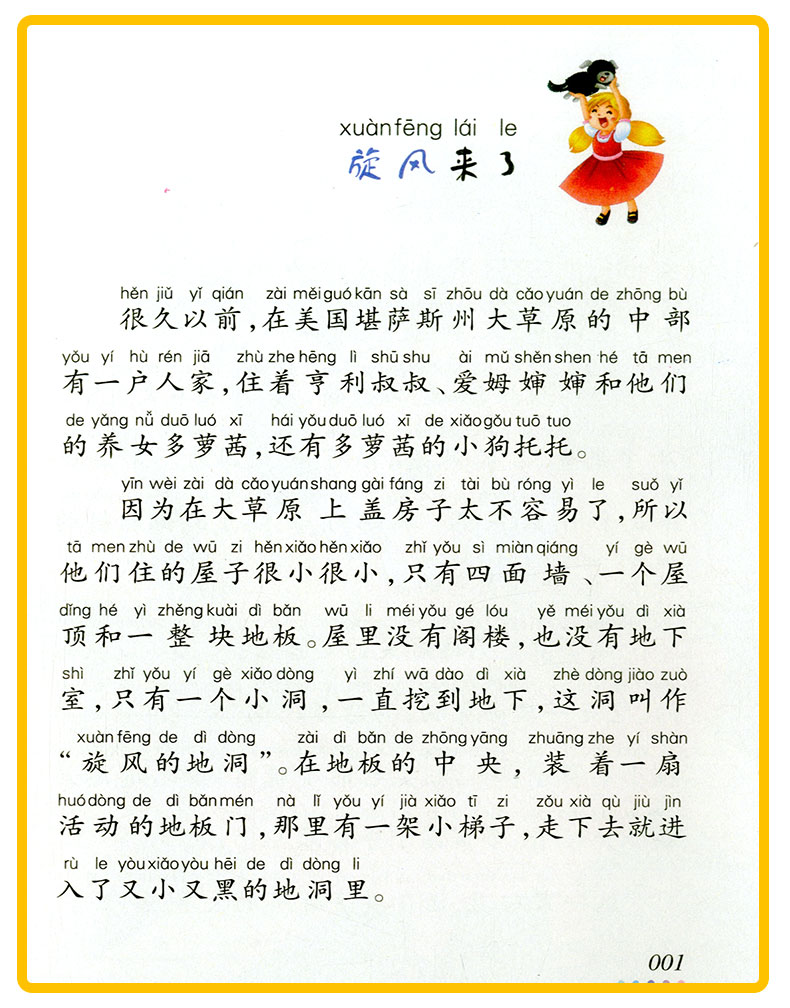 xuànfēng lái le
旋风来了
hěn jiǔ yǐ qián zài měi guó kān sà sī zhōu dà cǎo yuán de zhōng bù
很久以前,在美国堪萨斯州大草原的中部
yǒu yí hù rén jiā zhù zhe hēng lì shū shu ài mǔ shěn shen hé tā men
有一户人家,住着亨利叔叔、爱姆婶婶和他们
de yǎng nǚ duō luó xī hái yǒu duō luó xī de xiǎo gǒu tuō tuo
的养女多萝茜,还有多萝茜的小狗托托。
yīn wèi zài dà cǎo yuán shang gài fáng zi tài bù róng yì le suǒ yǐ
因为在大草原上盖房子太不容易了,所以
tā men zhù de wū zi hěn xiǎo hěn xiǎo zhǐ yǒu sì miàn qiáng yí gè wū
他们住的屋子很小很小,只有四面墙、一个屋
dǐng hé yì zhěng kuài dì bǎn wū li méi yǒu gé lóu yě méi yǒu dì xià
顶和一整块地板。屋里没有阁楼,也没有地下
shì zhǐ yǒu yí gè xiǎo dòng yì zhí wā dào dì xià zhè dòng jiào zuò
室,只有一个小洞,一直挖到地下,这洞叫作
xuàn fēng de dì dòng zài dì bǎn de zhōng yāng zhuāng zhe yí shàn
“旋风的地洞”。在地板的中央,装着一扇
huó dòng de dì bǎn mén nà lǐ yǒu yí jià xiǎo tī zi zǒu xià qù jiù jìn
活动的地板门,那里有一架小梯子,走下去就进
rù le yòu xiǎo yòu hēi de dì dòng li
入了又小又黑的地洞里。
001